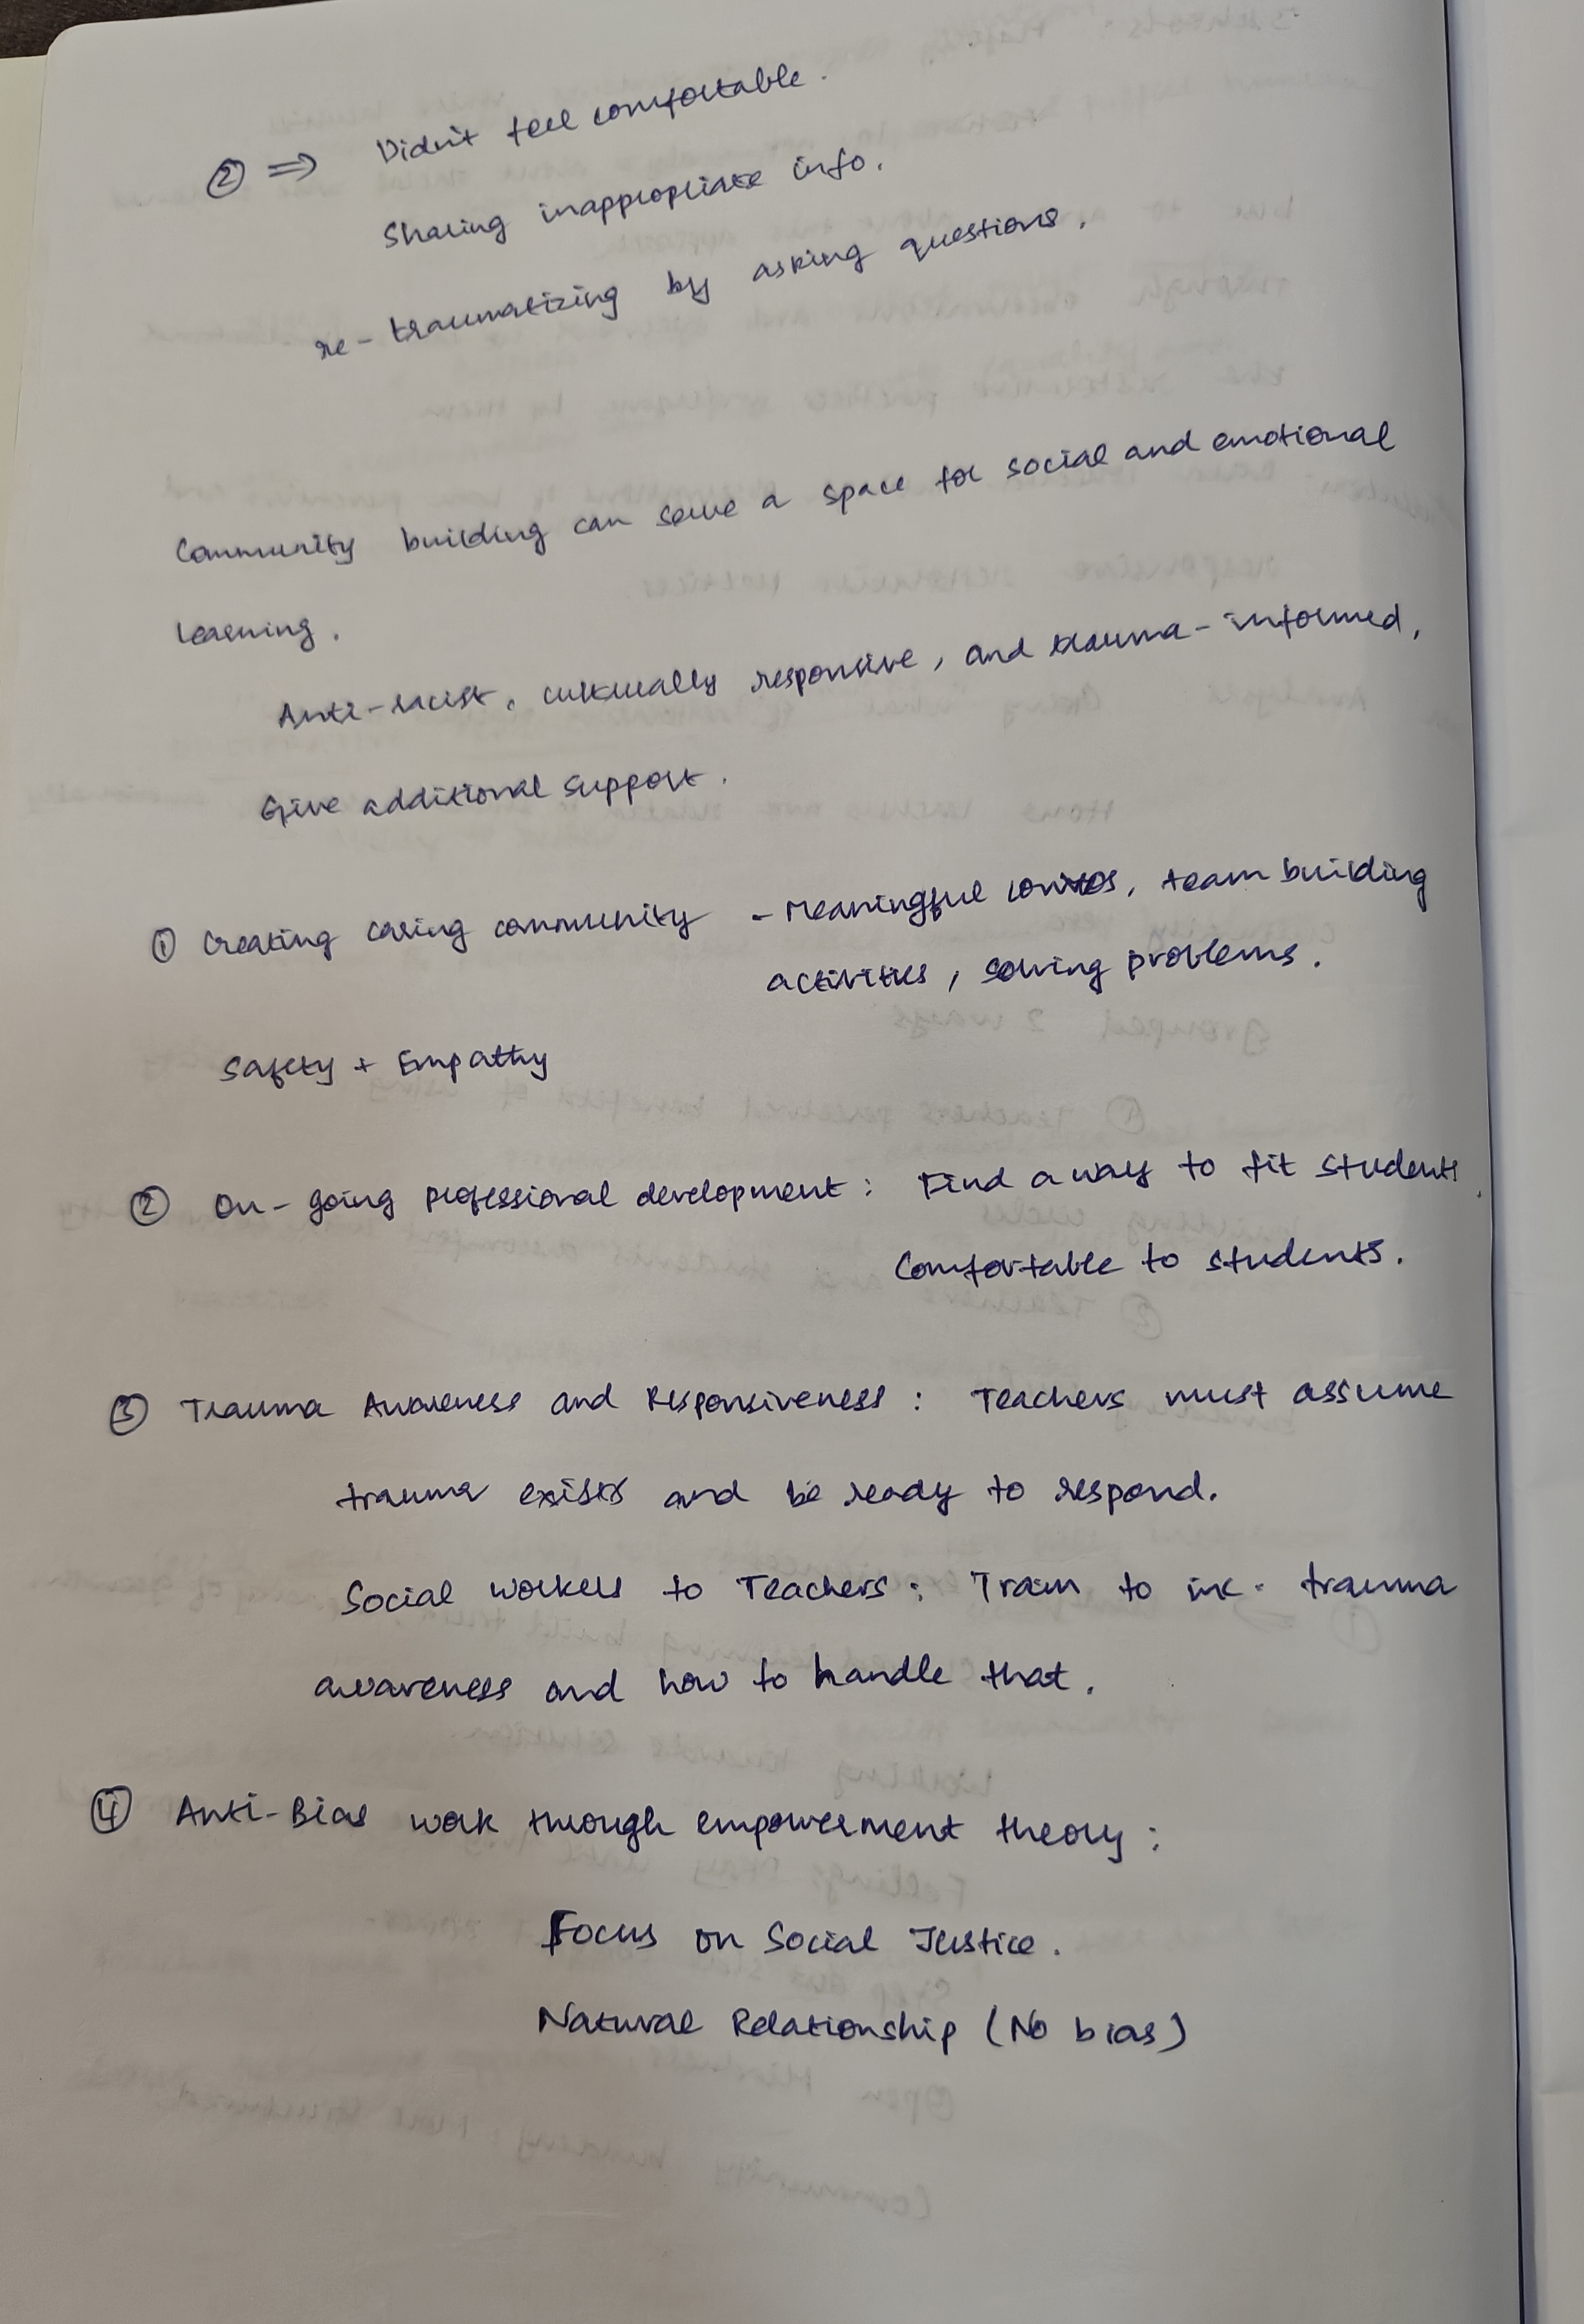 ② ⇒ Didn't feel comfortable.
Sharing inappropriate info.
re-traumatizing by asking questions.
Community building can serve a space for social and emotional
learning.
Anti-racist, culturally responsive, and trauma-informed,
Give additional support.
① Creating caring community - Meaningful convos, team building
activities, solving problems.
Safety + Empathy
② On-going professional development: Find a way to fit students,
Comfortable to students.
③ Trauma Awareness and Responsiveness: Teachers must assume
trauma exists and be ready to respond.
Social workers to Teachers: Train to inc. trauma
awareness and how to handle that.
④ Anti-Bias work through empowerment theory:
Focus on Social Justice.
Natural Relationship (No bias)